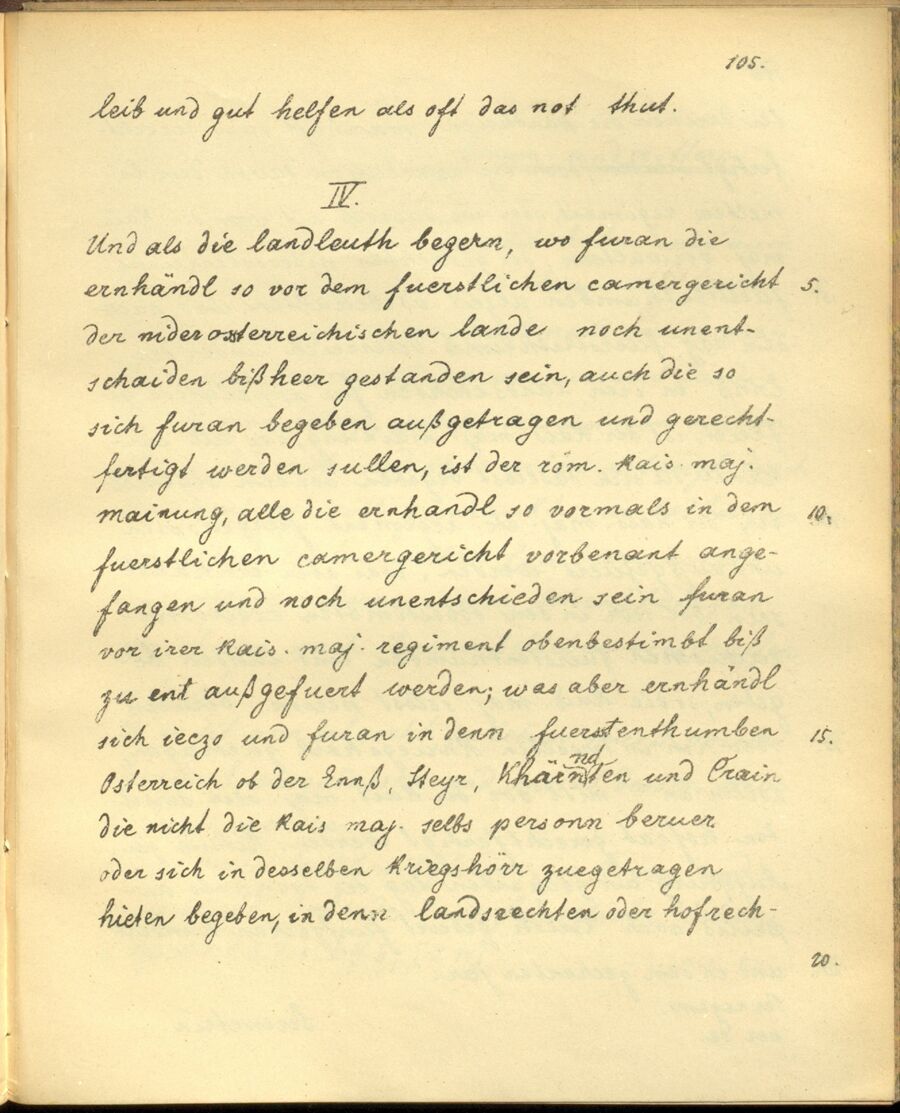 105.
leib und gut helfen als oft das not thut.
IV.
Und als die landleuth begern, wo furan die
ernhändl so vor dem fuerstlichen camergericht 5.
der niderosterreichischen lande noch unent-
schaiden bißheer gestanden sein, auch die so
sich furan begeben außgetragen und gerecht-
fertigt werden sullen, ist der röm. Kais. maj.
mainung, alle die ernhandl so vormals in dem 10.
fuerstlichen camergericht vorbenant ange-
fangen und noch unentschieden sein furan
vor irer Kais. maj. regiment obenbestimbt biß
zu ent außgefuert werden; was aber ernhändl
sich ieczo und furan in denn fuerstenthumben 15.
Osterreich ob der Ennß, Steyr, Khärndten und Crain
die nicht die Kais maj. selbs personn beruer
oder sich in desselben Kriegshörr zuegetragen
hieten begeben, in denn landsrechten oder hofrech-
20.